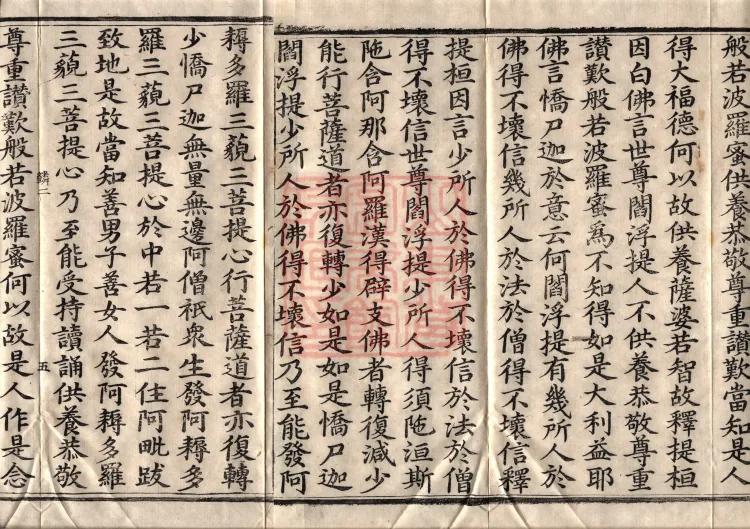 般若波羅蜜供養恭敬尊重讚歎當知是人
得大福德何以故供養薩婆若智故釋提桓
因白佛言世尊閻浮提人不供養恭敬尊重
讚歎般若波羅蜜爲不知得如是大利益耶
佛言憍尸迦於意云何閻浮提有幾所人於
佛得不壞信幾所人於法於僧得不壞信釋
提桓因言少所人於佛得不壞信於法於僧
得不壞信世尊閻浮提少所人得須陁洹斯
陁含阿那含阿羅漢得辟支佛者轉復減少
能行菩薩道者亦復轉少如是如是憍尸迦
閻浮提少所人於佛得不壞信乃至能發阿
耨多羅三藐三菩提心行菩薩道者亦復轉
少憍尸迦無量無邊阿僧祇衆生發阿耨多
羅三藐三菩提心於中若一若二住阿毗跋
致地是故當知善男子善女人發阿耨多羅
三藐三菩提心乃至能受持讀誦供養恭敬
麟二
五
尊重讚歎般若波羅蜜何以故是人作是念